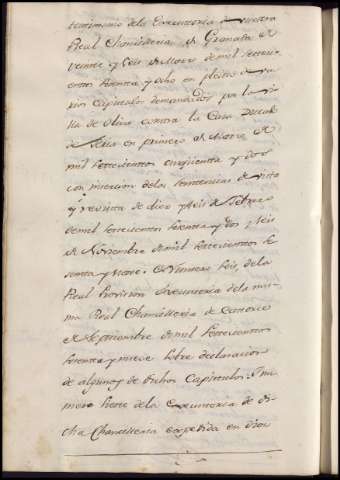 testimonio dela Executoria de vuestra
Real Chancilleria de Granada de
veinte y seis de Marzo de mil setecie
entos setenta y ocho en pleito de va
rios Capitulos demandados por la vi
lla de Oliva contra la Casa Ducal
de Feria en primero de Marzo de
mil setecientos cinquenta y dos
con insercion delas sentencias de vista
y revista de diez y seis de Febrero
demil setecientos setenta y dos y seis
de Noviembre demil setecientos se
senta y nueve. Numero seis, dela
Real Provision Executoria dela mis
ma Real Chancilleria de catorce
de Septiembre demil setecientos
setenta y nueve sobre declaracion
de algunos de dichos Capitulos. Nu
mero siete dela Executoria de di
cha Chancilleria expedida en dicos